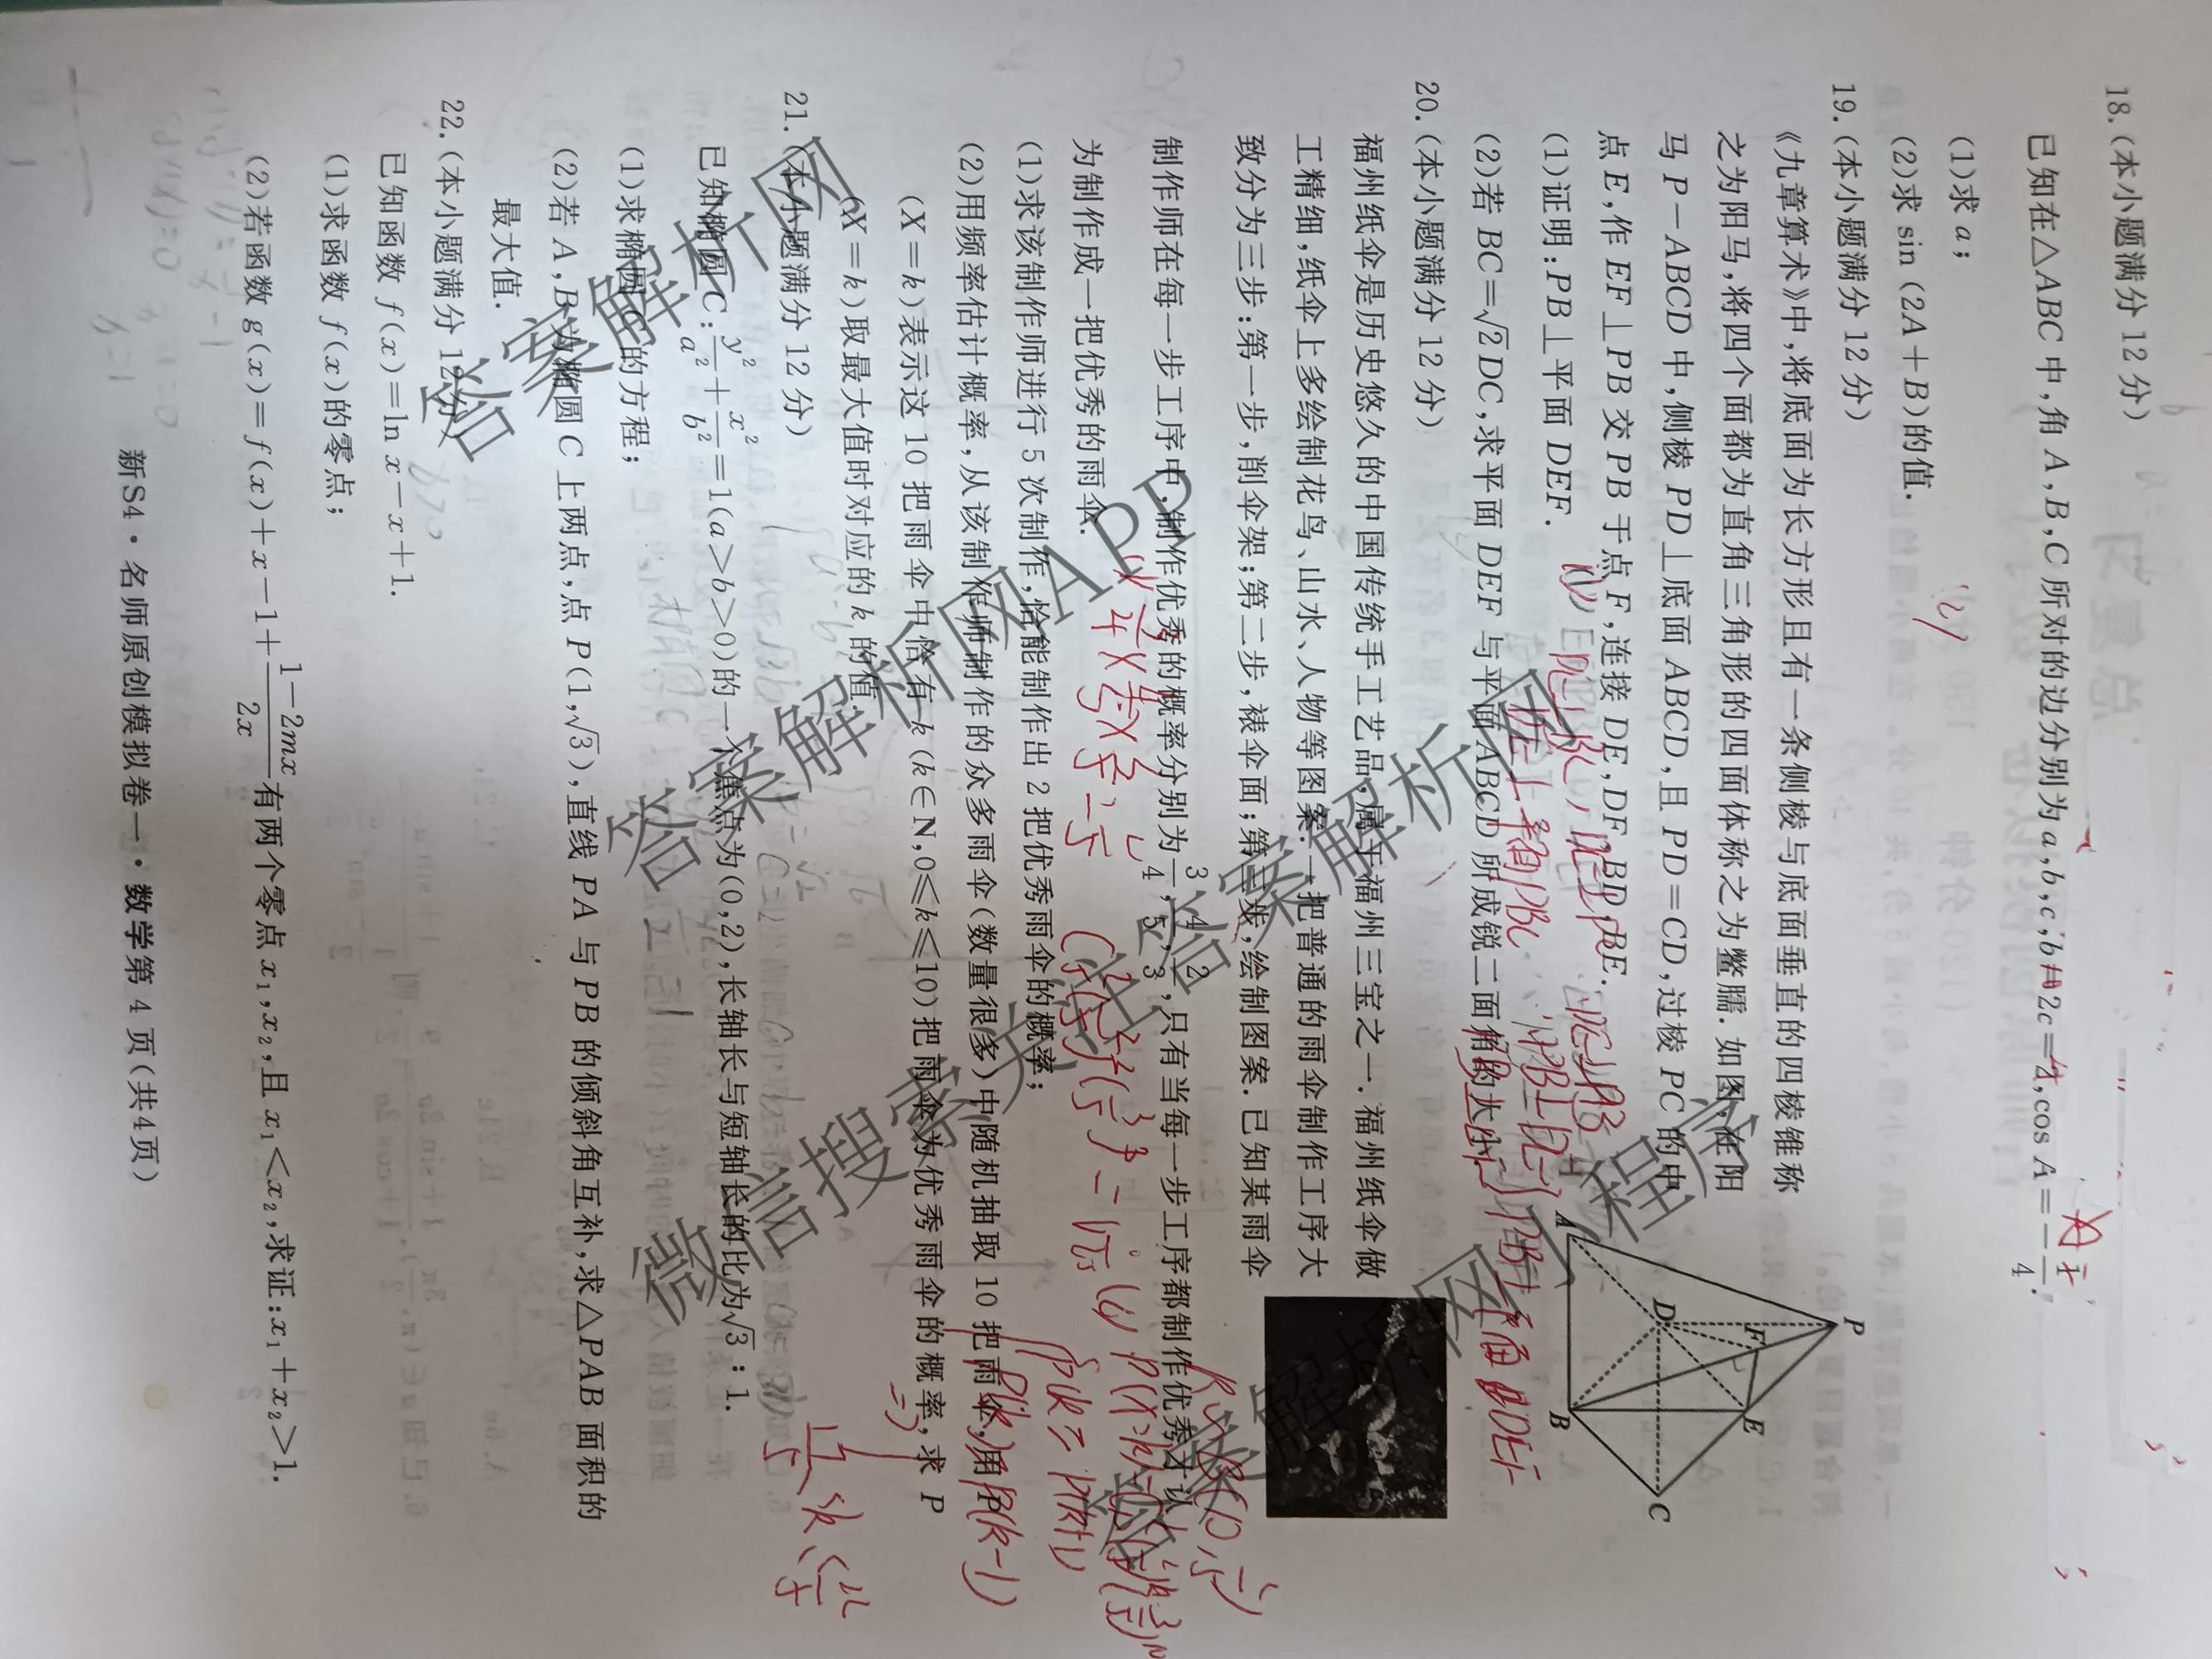 18.(本小题满分 12 分)
已知在△ABC 中,角 A,B,C 所对的边分别为 a,b,c,b=2c=4,cos A=-1/4.
(1)求 a;
(2)求 sin (2A+B)的值.
19.(本小题满分 12 分)
《九章算术》中,将底面为长方形且有一条侧棱与底面垂直的四棱锥称
之为阳马,将四个面都为直角三角形的四面体称之为鳖臑.如图,在阳
马 P-ABCD 中,侧棱 PD⊥底面 ABCD,且 PD=CD,过棱 PC 的中
点 E,作 EF⊥PB 交 PB 于点 F,连接 DE,DF,BD,BE.
(1)证明:PB⊥平面 DEF.
(2)若 BC=√2DC,求平面 DEF 与平面 ABCD 所成锐二面角的大小.
P
F
E
D
A
B
C
20.(本小题满分 12 分)
福州纸伞是历史悠久的中国传统手工艺品,属于福州三宝之一.福州纸伞做
工精细,纸伞上多绘制花鸟、山水、人物等图案.一把普通的雨伞制作工序大
致分为三步:第一步,削伞架;第二步,裱伞面;第三步,绘制图案.已知某雨伞
制作师在每一步工序中,制作优秀的概率分别为3/4,4/5,2/3,只有当每一步工序都制作优秀才认
为制作成一把优秀的雨伞.
(1)求该制作师进行 5 次制作,恰能制作出 2 把优秀雨伞的概率;
(2)用频率估计概率,从该制作师制作的众多雨伞(数量很多)中随机抽取 10 把雨伞,用 P
(X=k)表示这 10 把雨伞中恰有 k(k∈N,0≤k≤10)把雨伞为优秀雨伞的概率,求 P
(X=k)取最大值时对应的 k 的值.
21.(本小题满分 12 分)
已知椭圆 C:y²/a²+x²/b²=1(a>b>0)的一个焦点为(0,2),长轴长与短轴长的比为√3:1.
(1)求椭圆 C 的方程;
(2)若 A,B 为椭圆 C 上两点,点 P(1,√3),直线 PA 与 PB 的倾斜角互补,求△PAB 面积的
最大值.
22.(本小题满分 12 分)
已知函数 f(x)=ln x-x+1.
(1)求函数 f(x)的零点;
(2)若函数 g(x)=f(x)+x-1+(1-2mx)/2x有两个零点 x₁,x₂,且 x₁<x₂,求证:x₁+x₂>1.
新S4·名师原创模拟卷一·数学第 4 页(共4页)
答案解析网
答案解析网APP
答案解析网
答案解析网